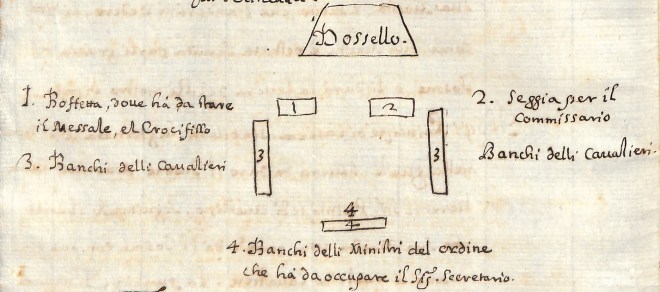 Dossello.
1. Boffetta, doue hà da stare
il Messale, el Crocifisso
1
2
2. Seggia per il
Commissario
3. Banchi delli Caualieri
3
3
Banchi delli Caualieri.
4
4
4. Banchi delli Ministri del ordine
che hà da occupare il Sig. Secretario.